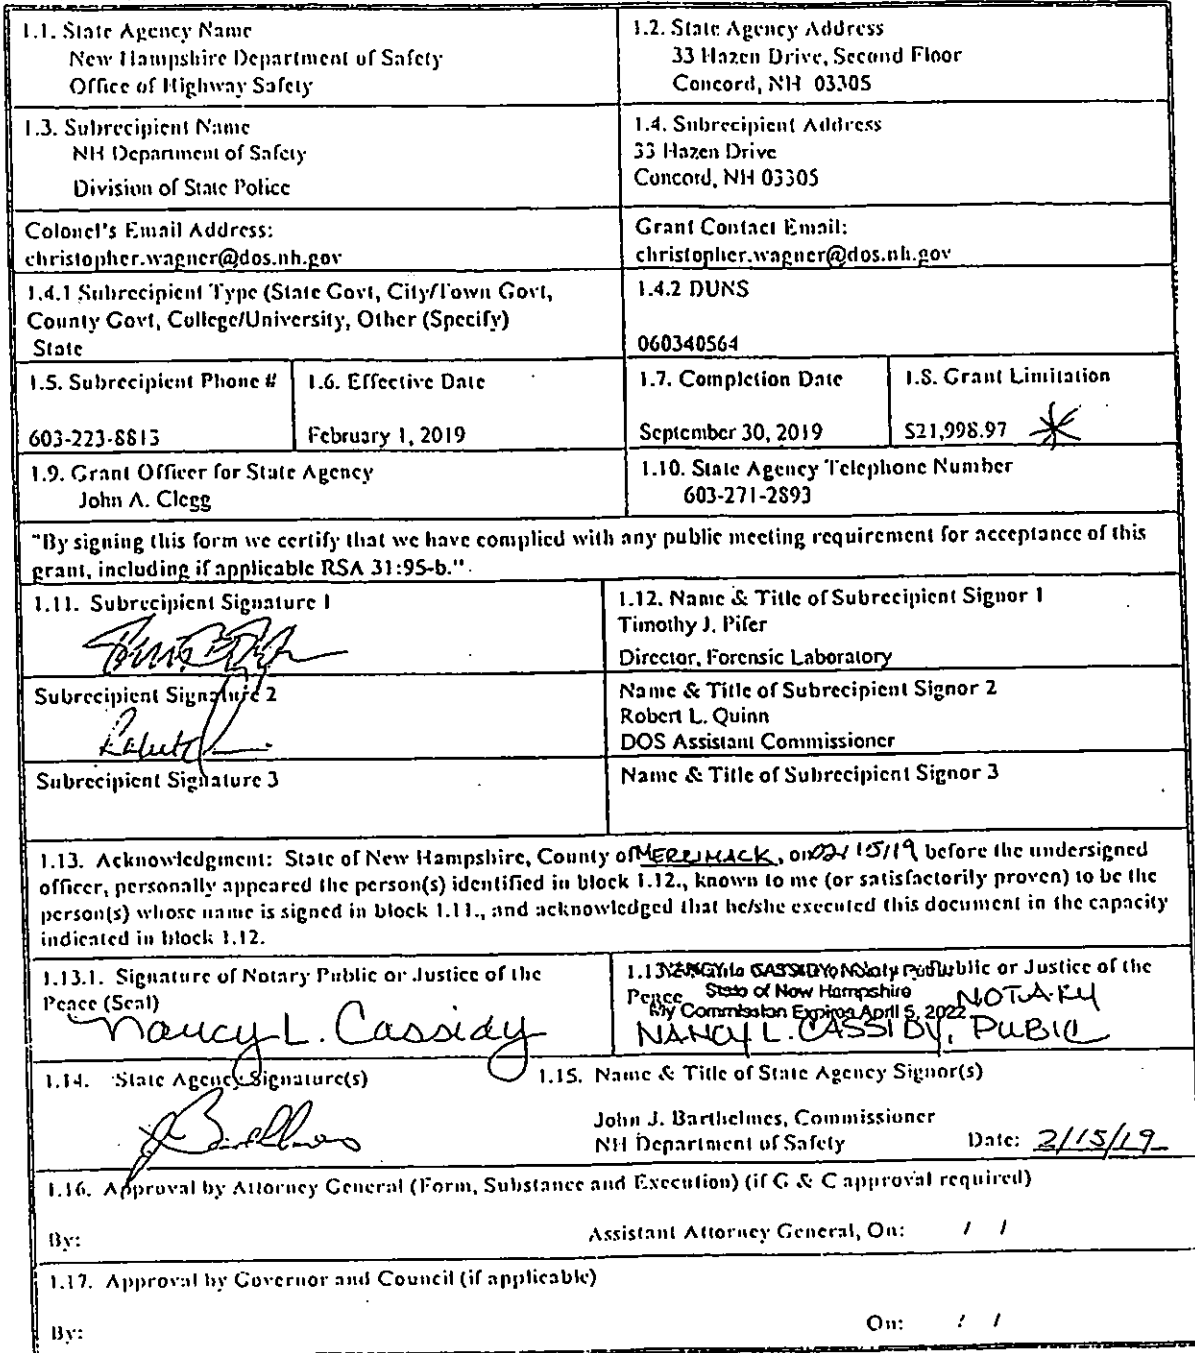 1.1. State Agency Name
New Hampshire Department of Safety
Office of Highway Safety
1.2. State Agency Address
33 Hazen Drive, Second Floor
Concord, NH 03305
1.3. Subrecipient Name
NH Department of Safety
Division of State Police
1.4. Subrecipient Address
33 Hazen Drive
Concord, NH 03305
Colonel's Email Address:
christopher.wagner@dos.nh.gov
Grant Contact Email:
christopher.wagner@dos.nh.gov
1.4.1 Subrecipient Type (State Govt, City/Town Govt,
County Govt, College/University, Other (Specify)
State
1.4.2 DUNS
060340564
1.5. Subrecipient Phone #
603-223-8813
1.6. Effective Date
February 1, 2019
1.7. Completion Date
September 30, 2019
1.8. Grant Limitation
$21,998.97 *
1.9. Grant Officer for State Agency
John A. Clegg
1.10. State Agency Telephone Number
603-271-2893
"By signing this form we certify that we have complied with any public meeting requirement for acceptance of this
grant, including if applicable RSA 31:95-b."
1.11. Subrecipient Signature 1
1.12. Name & Title of Subrecipient Signor 1
Timothy J. Pifer
Director, Forensic Laboratory
Subrecipient Signature 2
Name & Title of Subrecipient Signor 2
Robert L. Quinn
DOS Assistant Commissioner
Subrecipient Signature 3
Name & Title of Subrecipient Signor 3
1.13. Acknowledgment: State of New Hampshire, County of MERRIMACK, on 02/15/19 before the undersigned
officer, personally appeared the person(s) identified in block 1.12., known to me (or satisfactorily proven) to be the
person(s) whose name is signed in block 1.11., and acknowledged that he/she executed this document in the capacity
indicated in block 1.12.
1.13.1. Signature of Notary Public or Justice of the
Peace (Seal)
Nancy L. Cassidy
Public or Justice of the
Peace State of New Hampshire NOTARY
My Commission Expires April 5, 2022
NANCY L. CASSIDY, PUBIC
1.14. State Agency Signature(s)
1.15. Name & Title of State Agency Signor(s)
John J. Barthelmes, Commissioner
NH Department of Safety Date: 2/15/19
1.16. Approval by Attorney General (Form, Substance and Execution) (if G & C approval required)
By: Assistant Attorney General, On: / /
1.17. Approval by Governor and Council (if applicable)
By: On: / /